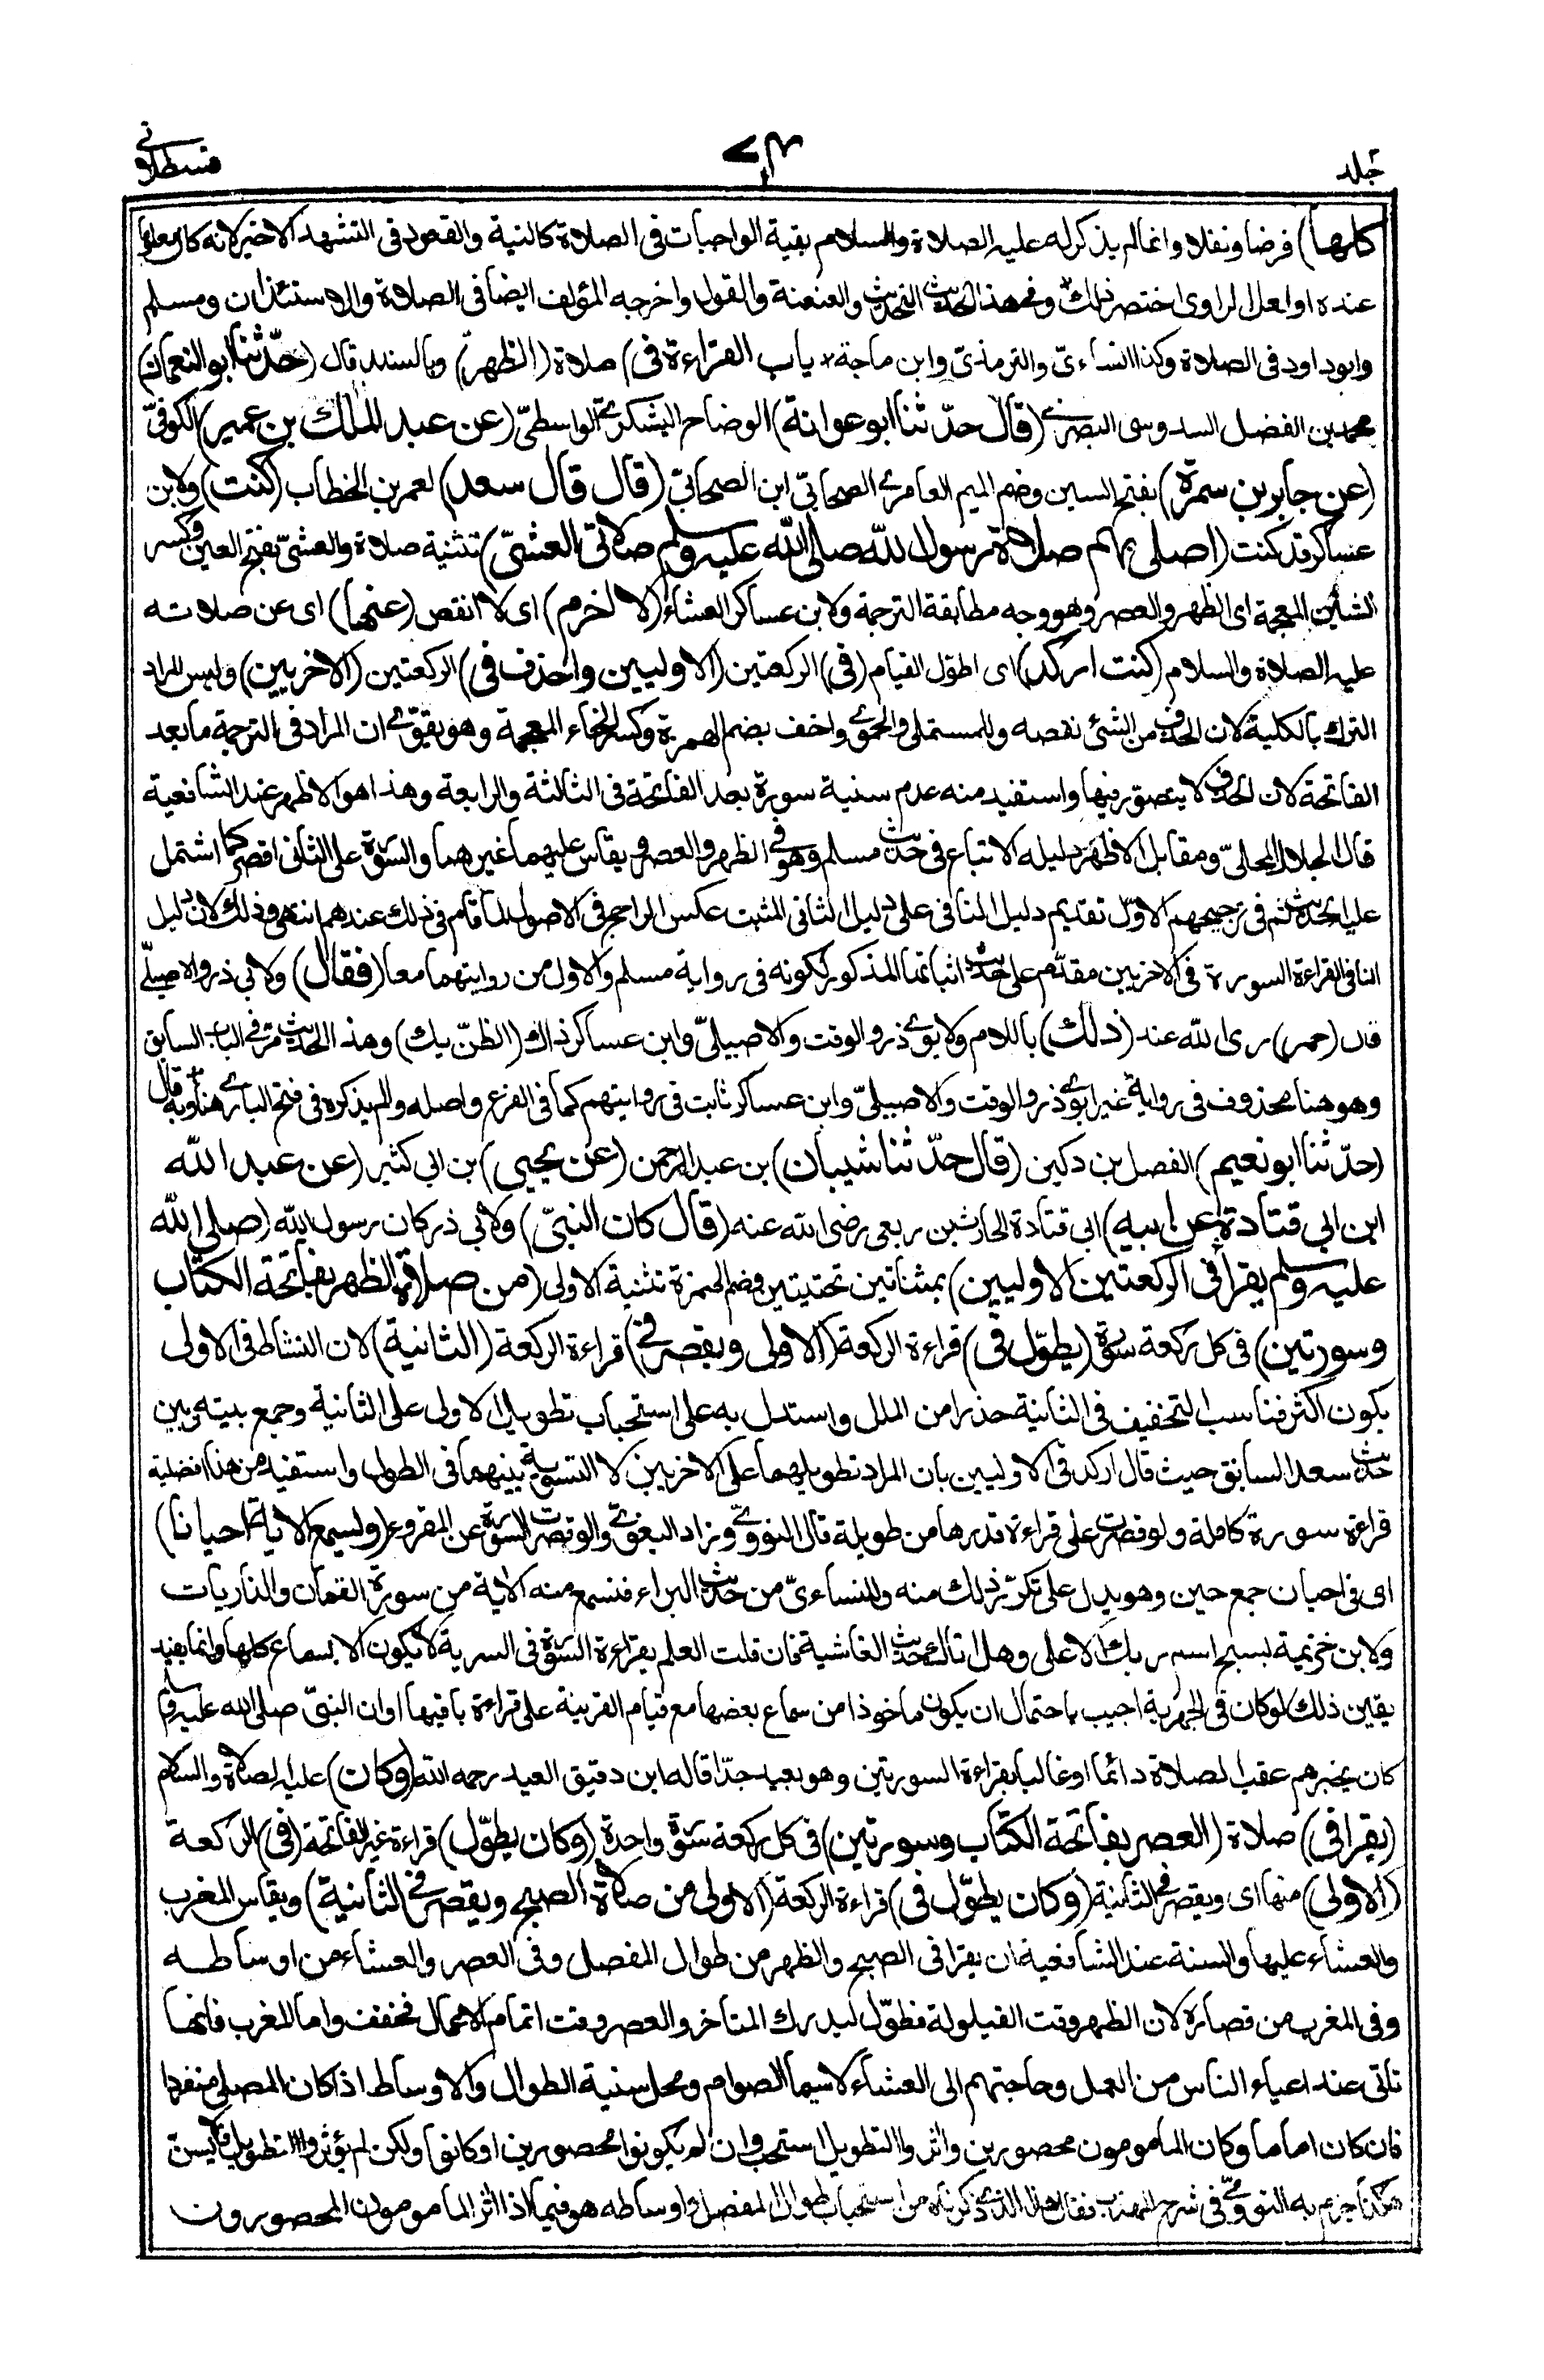 جلد
٧٣
قسطلانے
كلها) فرضا ونفلا وانما لم يذكر له عليه الصلاة والسلام بقية الواجبات فى الصلاة كالنية والقعود فى التشهد الاخير لانه كان معلوما
عنده او لعل الراوى اختصر ذلك وفى هذا الحديث التحديث والعنعنة والقول واخرجه المؤلف ايضا فى الصلاة والاستئذان ومسلم
وابوداود فى الصلاة وكذا النساءىّ والترمذىّ وابن ماجة * باب القراءة فى) صلاة (الظهر) وبالسند قال (حدّثنا ابو النعمان)
محمد بن الفضل السدوسى البصرے (قال حدّثنا ابو عوانة) الوضاح اليشكرے الواسطىّ (عن عبد الملك بن عمير) الكوفىّ
(عن جابر بن سمرة) بفتح السين وضم الميم العامرے الصحابىّ ابن الصحابىّ (قال قال سعد) لعمر بن الخطاب (كنت) ولابن
عساكر قد كنت (اصلى بهم صلاة رسول الله صلى الله عليه وسلم صلاتى العشىّ) تثنية صلاة والعشىّ بفتح العين وكسر
الشين المعجمة اى الظهر والعصر وهو وجه مطابقة الترجمة ولابن عساكر العشاء (لا اخرم) اى لا انقص (عنها) اى عن صلاته
عليه الصلاة والسلام (كنت اركد) اى اطوّل القيام (فى) الركعتين (الاوليين واحذف فى) الركعتين (الاخريين) وليس المراد
الترك بالكلية لان الحذف من الشئ نقصه وللمستملى والحموے واخف بضم الهمزة وكسر الخاء المعجمة وهو يقوّے ان المراد فى الترجمة ما بعد
الفاتحة لان الحذف لا يتصور فيها واستفيد منه عدم سنية سورة بعد الفاتحة فى الثالثة والرابعة وهذا هو الاظهر عند الشافعية
قال الجلال المحلىّ ومقابل الاظهر دليله الاتباع فى حديث مسلم وهو فے الظهر والعصر ويقاس عليهما غيرهما والسورة على الثانى اقصر كما اشتمل
عليه الحديث ثم فى ترجيحهم الاوّل تقديم دليل النافى على دليل الثانى المثبت عكس الراجح فى الاصول لما قام فى ذلك عندهم انتهى وذلك لان دليل
النافى لقراءة السورة فى الاخريين مقدّم على حديث اثباتها المذكور لكونه فى رواية مسلم والاول من روايتهما معا (فقال) ولابى ذر والاصيلىّ
قال (عمر) رضى الله عنه (ذلك) باللام ولابوے ذر والوقت والاصيلىّ وابن عساكر ذاك (الظنّ بك) وهذا الحديث مرّ فے الباب السابق
وهو هنا محذوف فى رواية غير ابوے ذر والوقت والاصيلىّ وابن عساكر ثابت فى روايتهم كما فى الفرع واصله ولم يذكره فى فتح البارے هنا * وبه قال
(حدّثنا ابو نعيم) الفضل بن دكين (قال حدّثنا شيبان) بن عبد الرحمن (عن يحيى) بن ابى كثير (عن عبد الله
ابن ابى قتادة عن ابيه) ابى قتادة الحارث بن ربعى رضى الله عنه (قال كان النبىّ) ولابى ذر كان رسول الله (صلى الله
عليه وسلم يقرأ فى الركعتين الاوليين) بمثناتين تحتيتين وضم الهمزة تثنية الاولى (من صلاة الظهر بفاتحة الكتاب
وسورتين) فى كل ركعة سورة (يطوّل فى) قراءة الركعة (الاولى ويقصر فے) قراءة الركعة (الثانية) لان النشاط فى الاولى
يكون اكثر فناسب التخفيف فى الثانية حذرا من الملل واستدل به على استحباب تطويل الاولى على الثانية وجمع بينه وبين
حديث سعد السابق حيث قال اركد فى الاوليين بان المراد تطويلهما على الاخريين لا التسوية بينهما فى الطول واستفيد من هذا افضلية
قراءة سورة كاملة ولو قصرت على قراءة قدرها من طويلة قال النووے وزاد البغوے ولو قصرت السورة عن المقروء (ويسمع الاية احيانا)
اى فى احيان جمع حين وهو يدل على تكرّر ذلك منه وللنساءىّ من حديث البراء فنسمع منه الاية من سورة لقمان والذاريات
ولابن خزيمة بسبح اسم ربك الاعلى وهل اتاك حديث الغاشية فان قلت العلم بقراءة السورة فى السرية لا يكون الا بسماع كلها وانما يفيد
يقين ذلك لو كان فى الجهرية اجيب باحتمال ان يكون ماخوذا من سماع بعضها مع قيام القرينة على قراءة باقيها او ان النبىّ صلى الله عليه وسلم
كان يخبرهم عقب الصلاة دائما او غالبا بقراءة السورتين وهو بعيد جدّا قاله ابن دقيق العيد رحمه الله (وكان) عليه الصلاة والسلام
(يقرأ فى) صلاة (العصر بفاتحة الكتاب وسورتين) فى كل ركعة سورة واحدة (وكان يطوّل) قراءة غير الفاتحة (فى) الركعة
(الاولى) منها اى ويقصر فے الثانية (وكان يطوّل فى) قراءة الركعة (الاولى من صلاة الصبح ويقصر فے الثانية) ويقاس المغرب
والعشاء عليها والسنة عند الشافعية ان يقرا فى الصبح والظهر من طوال المفصل وفى العصر والعشاء من اوساطه
وفى المغرب من قصاره لان الظهر وقت القيلولة فطوّل ليدرك المتاخر والعصر وقت اتمام الاعمال فخفف واما المغرب فانها
تاتى عند اعياء الناس من العمل وحاجتهم الى العشاء لاسيما الصوام ومحل سنية الطوال والاوساط اذا كان المصلى منفردا
فان كان اماما وكان المأمومون محصورين واثروا التطويل استحب وان لم يكونوا محصورين او كانوا ولكن لم يؤثروا التطويل فلا يسنّ
هكذا جزم به النووے فى شرح المهذب فقال هذا الذے ذكرناه من استحباب طوال المفصل واوساطه هو فيما اذا اثر المامومون المحصورون